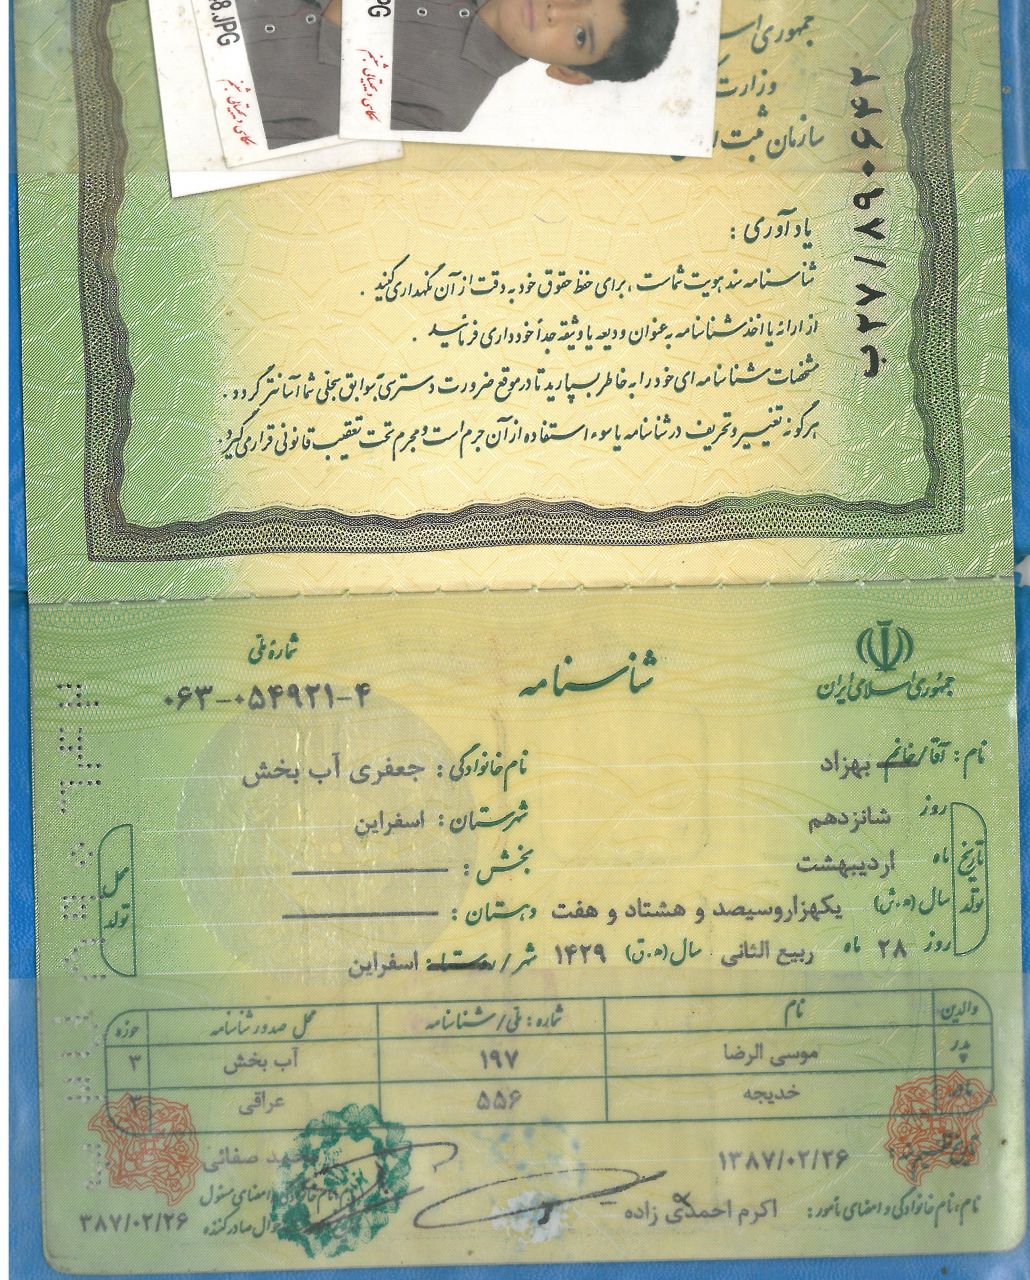 8.JPG
PG
عکاسی دیجیتالی
عکاسی دیجیتالی
جمهوری اسـ
وزارت
سازمان ثبت
ب۲۷/۸۹۰۶۴۲
یادآوری :
شناسنامه سند هویت شماست ، برای حفظ حقوق خود به دقت از آن نگهداری کنید .
از ارائه یا اخذ شناسنامه به عنوان ودیعه یا وثیقه جداً خودداری فرمائید .
مشخصات شناسنامه ای خود را به خاطر بسپارید تا در موقع ضرورت دسترسی به سوابق سجلی شما آسانتر گردد .
هرگونه تغییر و تحریف در شناسنامه یا سوء استفاده از آن جرم است و مجرم تحت تعقیب قانونی قرار می گیرد .
جمهوری اسلامی ایران
شناسنامه
شماره ملی
۰۶۳-۰۵۴۹۲۱-۴
نام : آقا/خانم بهزاد
نام خانوادگی : جعفری آب بخش
تاریخ تولد
روز شانزدهم
ماه اردیبهشت
سال (ه.ش) یکهزاروسیصد و هشتاد و هفت
روز ۲۸ ماه ربیع الثانی سال (ه.ق) ۱۴۲۹
محل تولد
شهرستان : اسفراین
بخش :
دهستان :
شهر/روستا : اسفراین
والدین نام شماره : ملی/شناسنامه محل صدور شناسنامه حوزه
پدر موسی الرضا ۱۹۷ آب بخش ۳
مادر خدیجه ۵۵۶ عراقی ۳
تاریخ تنظیم : ۱۳۸۷/۰۲/۲۶
صفائی
نام،نام خانوادگی و امضای مأمور : اکرم احمدی زاده
نام خانوادگی و امضای مسئول
صادرکننده
۳۸۷/۰۲/۲۶